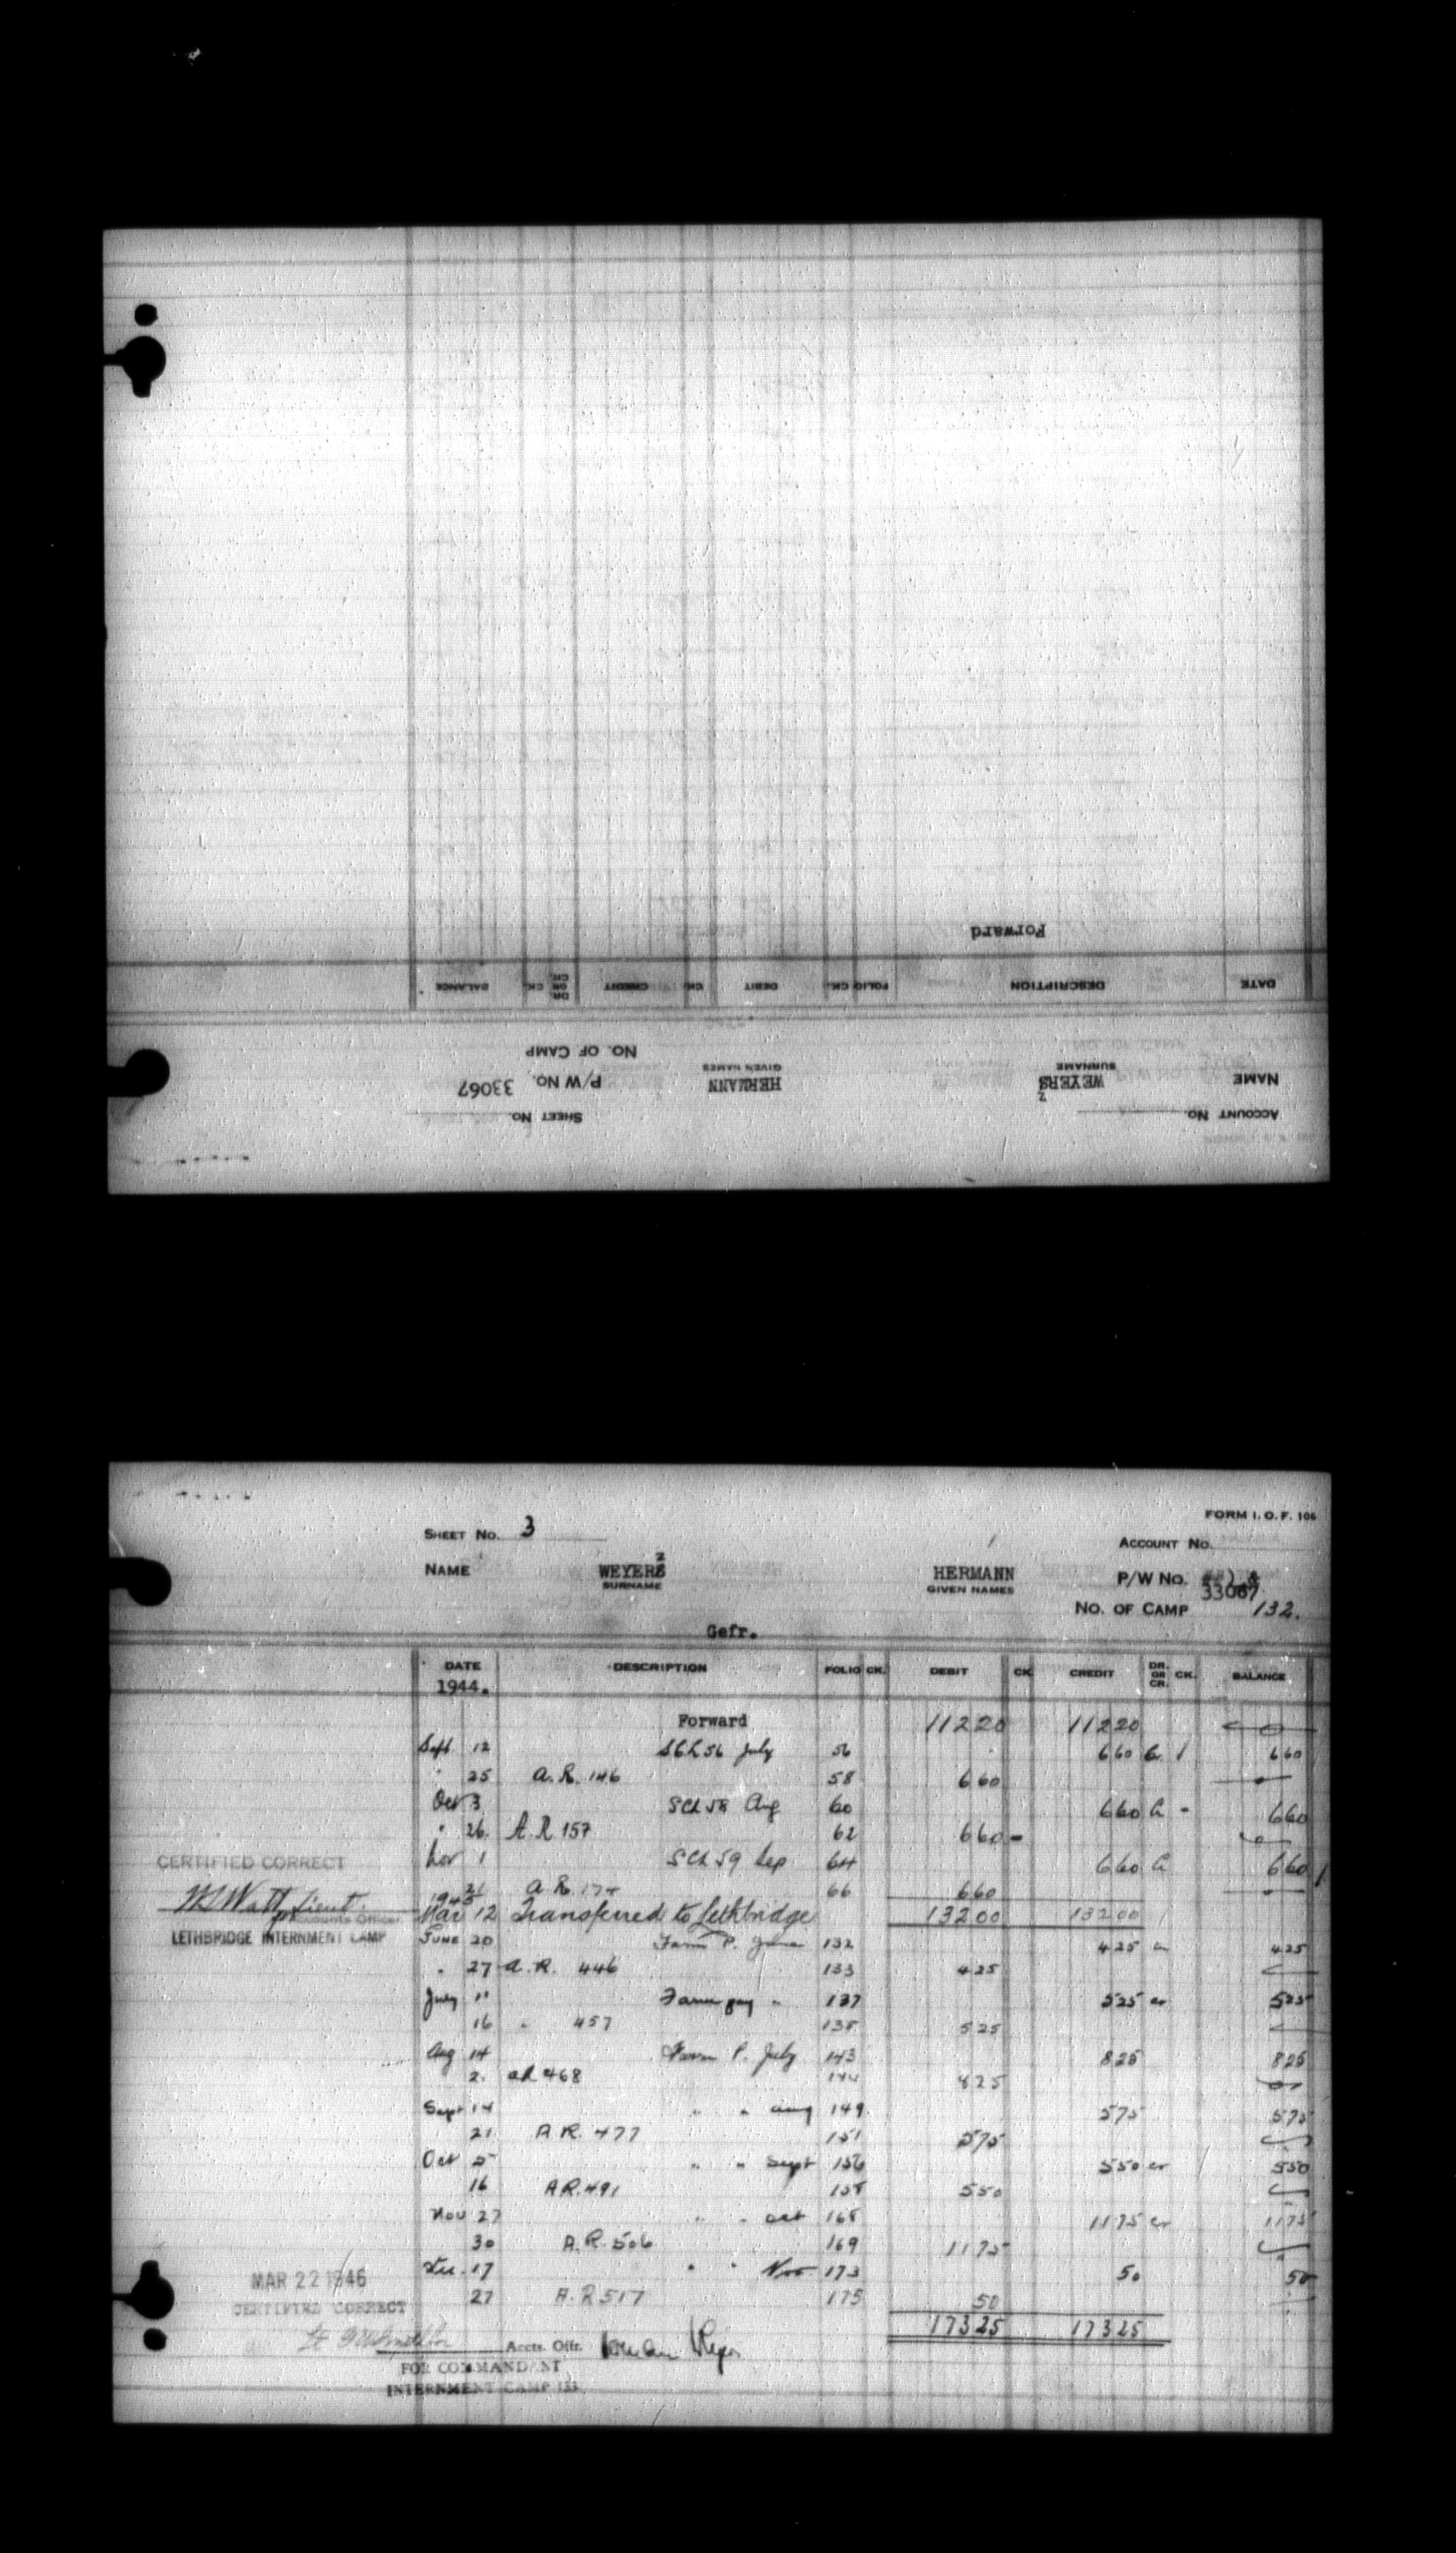 Forward
DATE DESCRIPTION FOLIO CK. DEBIT CK. CREDIT DR. OR CR. CK. BALANCE
NO. OF CAMP
NAME WEYERS z SURNAME HERMANN GIVEN NAMES P/W NO. 33067
ACCOUNT NO. SHEET NO.
FORM I. O. F. 106
SHEET NO. 3 ACCOUNT NO.
NAME WEYERS z SURNAME HERMANN GIVEN NAMES P/W NO. 33067
NO. OF CAMP 132.
Gefr.
DATE DESCRIPTION FOLIO CK. DEBIT CK. CREDIT DR. OR CR. CK. BALANCE
1944.
Forward 112 20 112 20 0
Sept 12 Sch 56 July 56 6 60 Cr 6 60
" 25 A.R. 146 58 6 60
Oct 3 Sch 58 Aug 60 6 60 Cr 6 60
" 26. A.R 157 62 6 60
Nov 1 Sch 59 Sep 64 6 60 Cr 6 60
CERTIFIED CORRECT
21 A.R. 174 66 6 60
1945
Lieut.
Accounts Officer
Mar 12 Transferred to Lethbridge 132 00 132 00
LETHBRIDGE INTERNMENT CAMP
June 20 Farm P. June 132 4 25 cr 4 25
" 27 A.R. 446 133 4 25
July 11 Farm pay " 137 5 25 cr 5 25
16 " 457 138 5 25
Aug 14 Farm P. July 143 8 25 8 25
2. AR 468 144 8 25
Sept 14 " " Aug 149 5 75 5 75
21 A.R. 477 151 5 75
Oct 5 " " Sept 156 5 50 cr 5 50
16 A.R. 491 158 5 50
Nov 27 " " Oct 168 11 75 cr 11 75
30 A.R. 506 169 11 75
Dec. 17 " " Nov 173 50 50
MAR 22 1946
27 A.R 517 175 50
CERTIFIED CORRECT
173 25 173 25
Accts. Offr.
FOR COMMANDANT
INTERNMENT CAMP 133